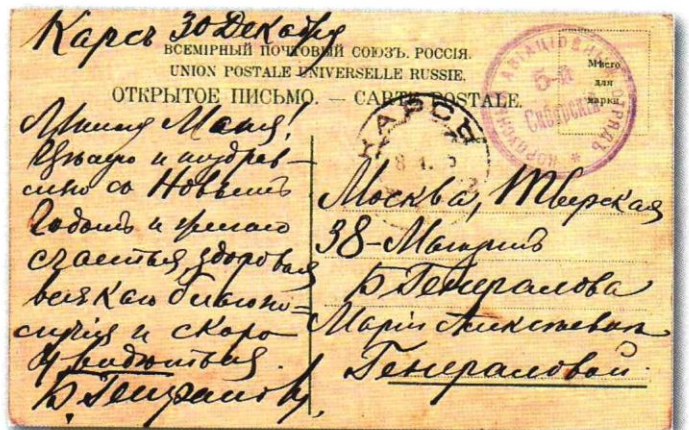 Карсъ 30 Декабря
ВСЕМІРНЫЙ ПОЧТОВЫЙ СОЮЗЪ. РОССІЯ.
UNION POSTALE UNIVERSELLE RUSSIE.
ОТКРЫТОЕ ПИСЬМО. — CARTE POSTALE.
Мѣсто
для
марки
КОРПУСНЫЙ АВІАЦІОННЫЙ ОТРЯДЪ
5-й
Сибирскій
КАРСЪ
Милая Маня!
Цѣлую и поздрав-
ляю со Новымъ
Годомъ и желаю
счастья, здоровья
всякаго благопо-
лучія и скоро
Б. Генералов
Москва, Тверская
38-Магазинъ
Б Генералова
Маріи Алексѣевнѣ
Генераловой.